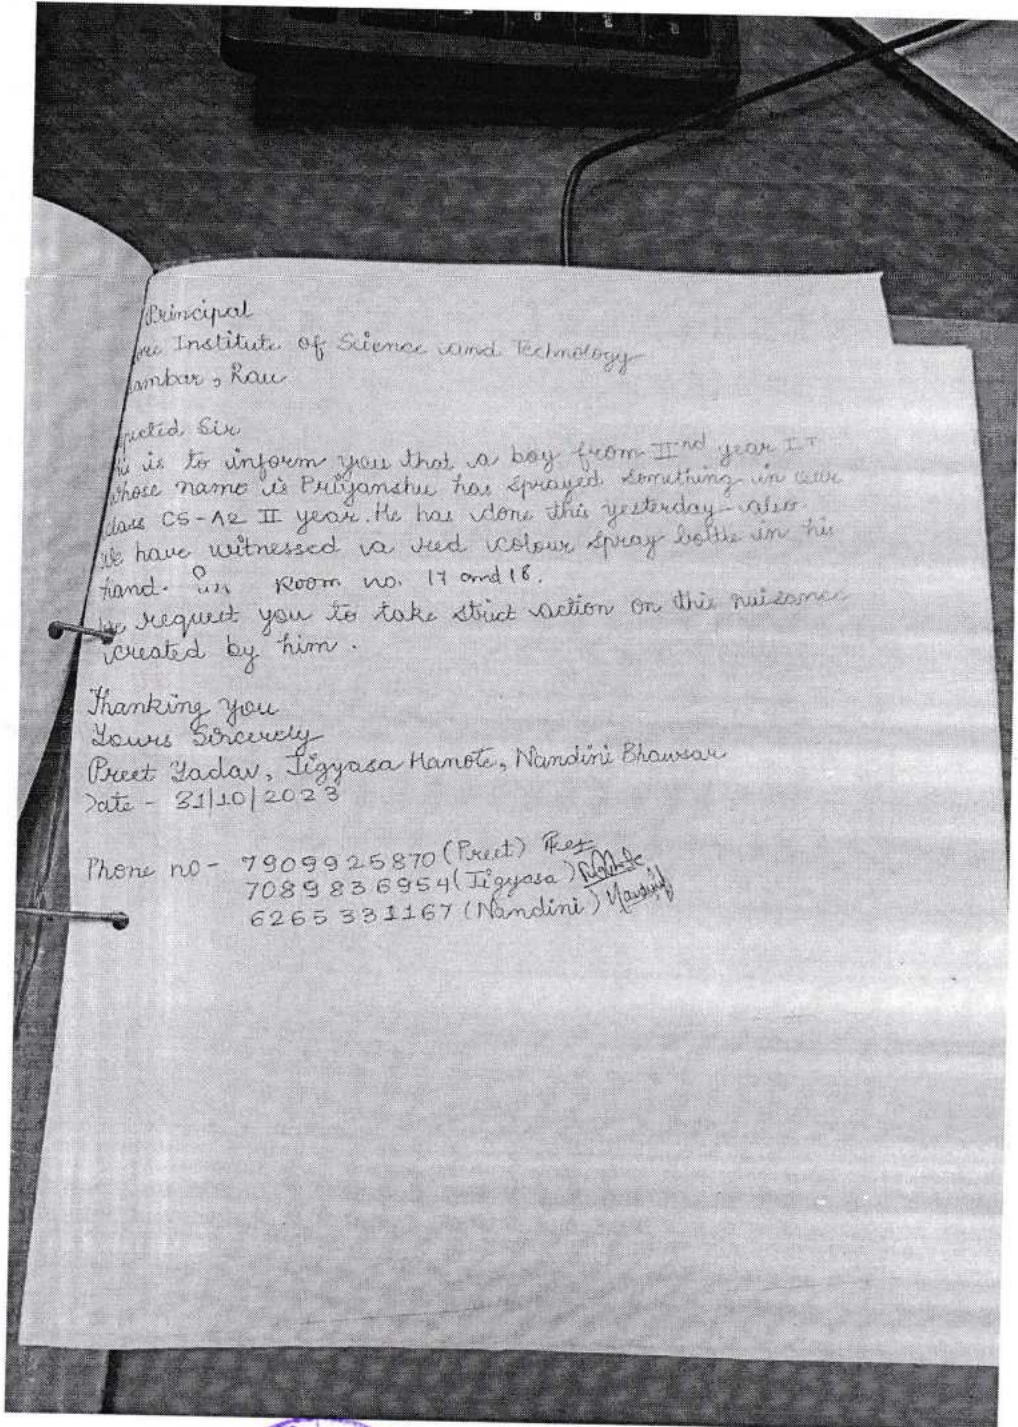 Principal
Institute of Science and Technology
Rau
Sir
is to inform you that a boy from IInd year I.T
whose name is Priyanshu has sprayed something in our
class CS-A2 II year. He has done this yesterday also.
We have witnessed a red colour spray bottle in his
hand. In Room no. 17 and 18.
We request you to take strict action on this nuisance
created by him.
Thanking you
Yours Sincerely
Preet Yadav, Jigyasa Hanote, Nandini Bhawsar
Date - 31/10/2023
Phone no - 7909925870 (Preet)
7089836954 (Jigyasa)
6265331167 (Nandini)